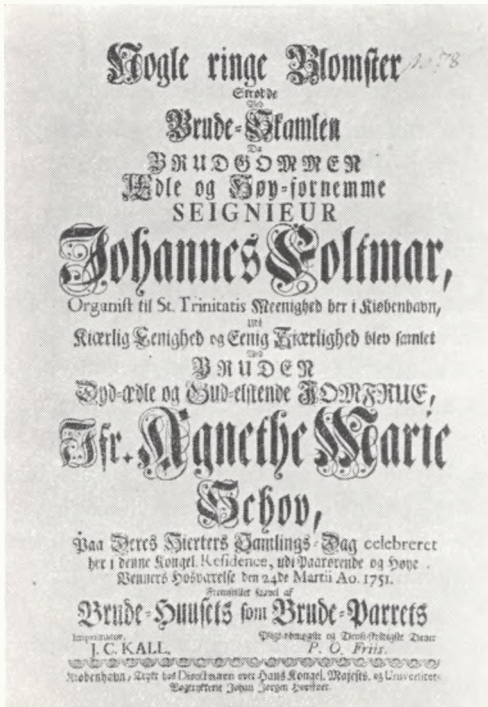 Nogle ringe Blomster
No 78
Strøede
Ved
Brude-Skamlen
Da
BRUDGOMMEN
Ædle og Høy-fornemme
SEIGNIEUR
Johannes Foltmar,
Organist til St. Trinitatis Meenighed her i Kiøbenhavn,
Udi
Kiærlig Eenighed og Eenig Kiærlighed blev samlet
Med
BRUDEN
Dyd-ædle og Gud-elskende JOMFRUE,
Jfr. Agnethe Marie
Schov,
Paa Deres Hierters Samlings-Dag celebreret
her i denne Kongel. Residence, udi Paarørende og Høye
Venners Hosværelse den 24de Martii Ao. 1751.
Fremstillet saavel af
Brude-Huusets som Brude-Parrets
Imprimatur.
J. C. KALL.
Pligt-ydmygste og Tienst-skyldigste Tiener
P. O. Friis.
Kiøbenhavn, Trykt hos Directeuren over Hans Kongel. Majests. og Universitets-
Bogtrykkerie Johan Jørgen Høpffner.